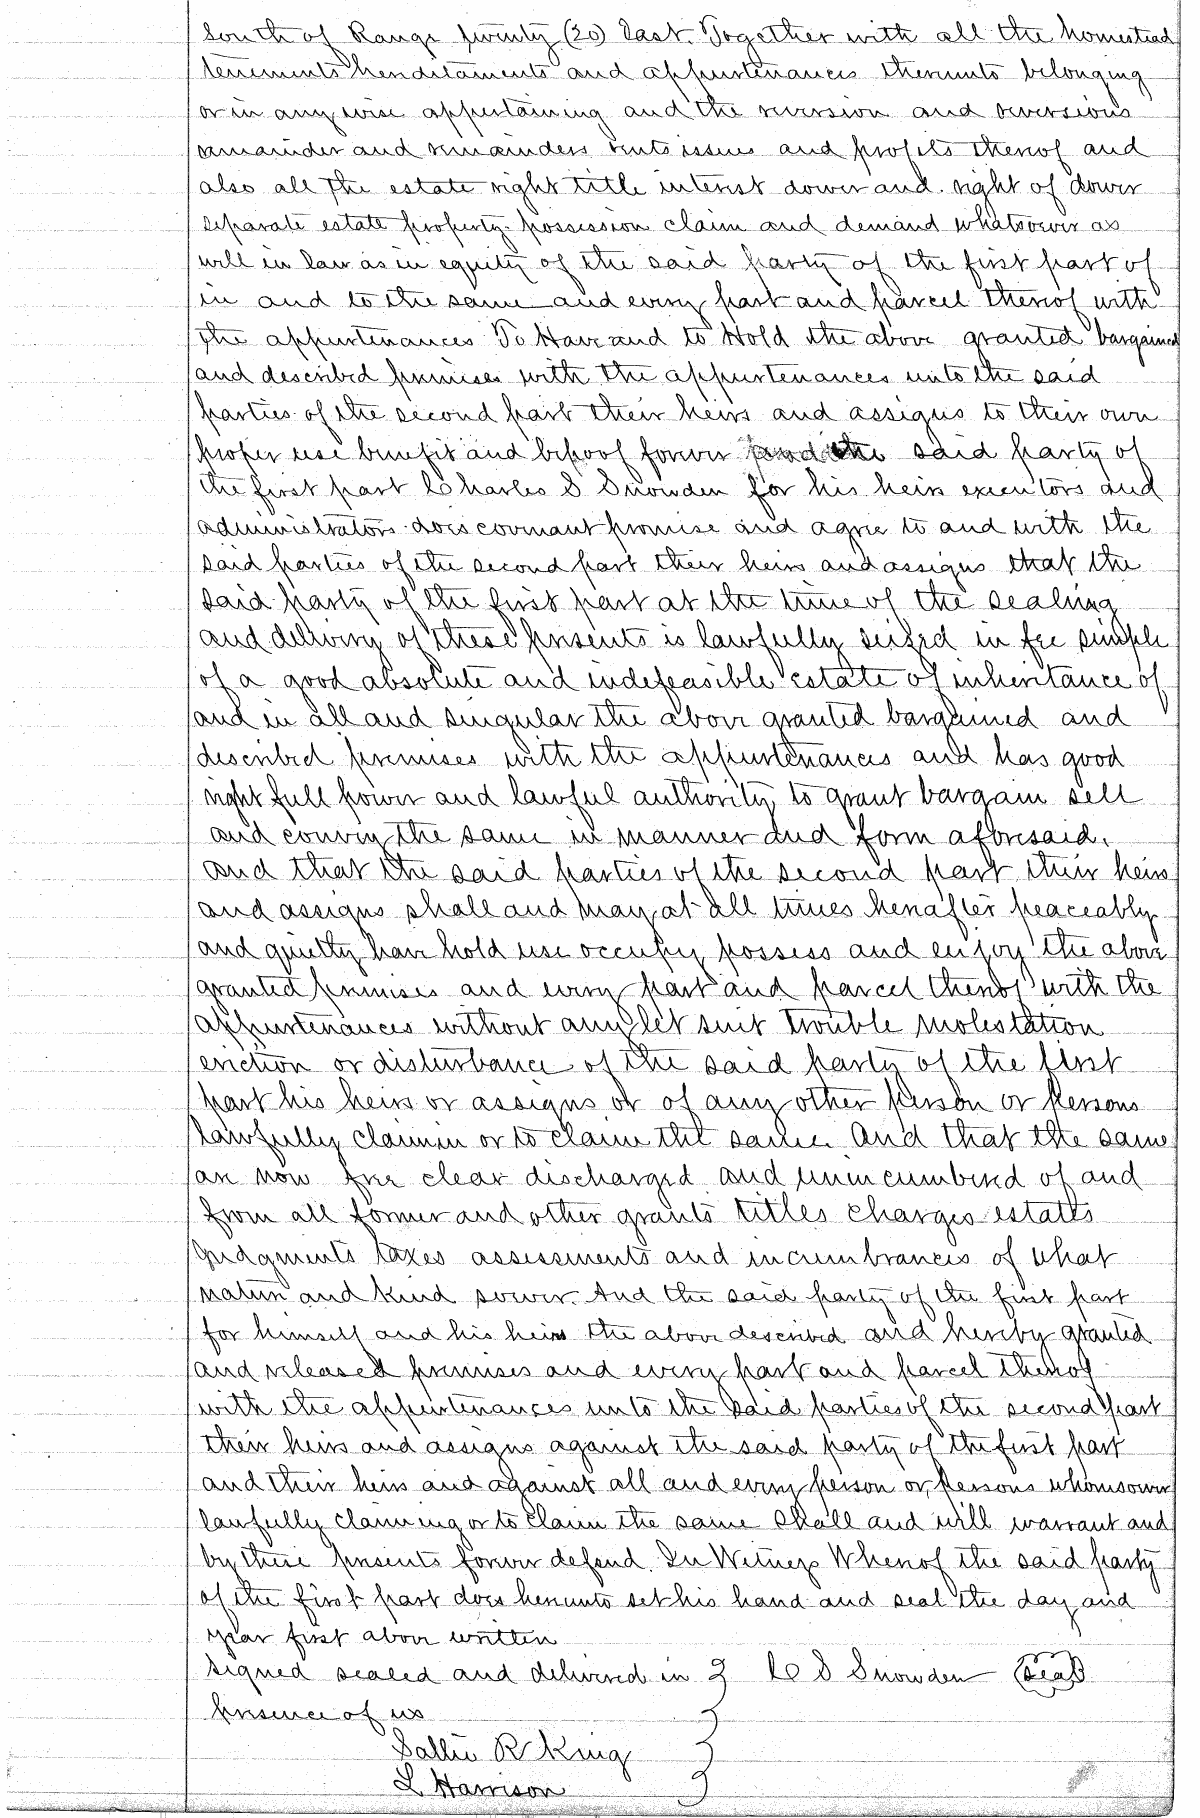 South of Range twenty (20) East. Together with all the homestead
tenements hereditaments and appurtenances thereunto belonging
or in any wise appertaining and the reversion and reversions
remainder and remainders rents issues and profits thereof and
also all the estate right title interest dower and right of dower
separate estate property possession claim and demand whatsoever as
well in law as in equity of the said party of the first part of
in and to the same and every part and parcel thereof with
the appurtenances To Have and to Hold the above granted bargained
and described premises with the appurtenances unto the said
parties of the second part their heirs and assigns to their own
proper use benefit and behoof forever and the said party of
the first part Charles S Snowden for his heirs executors and
administrators does covenant promise and agree to and with the
said parties of the second part their heirs and assigns that the
said party of the first part at the time of the sealing
and delivery of these presents is lawfully seized in fee simple
of a good absolute and indefeasible estate of inheritance of
and in all and singular the above granted bargained and
described premises with the appurtenances and has good
right full power and lawful authority to grant bargain sell
and convey the same in manner and form aforesaid.
and that the said parties of the second part their heirs
and assigns shall and may at all times hereafter peaceably
and quietly have hold use occupy possess and enjoy the above
granted premises and every part and parcel thereof with the
appurtenances without any let suit trouble molestation
eviction or disturbance of the said party of the first
part his heirs or assigns or of any other person or persons
lawfully claimin or to claim the same. And that the same
are now free clear discharged and unincumbered of and
from all former and other grants titles charges estates
judgments taxes assessments and incumbrances of what
nature and kind soever. And the said party of the first part
for himself and his heirs the above described and hereby granted
and released premises and every part and parcel thereof
with the appurtenances unto the said parties of the second part
their heirs and assigns against the said party of the first part
and their heirs and against all and every person or persons whomsoever
lawfully claiming or to claim the same shall and will warrant and
by these presents forever defend. In Witness Whereof the said party
of the first part does hereunto set his hand and seal the day and
year first above written
Signed sealed and delivered in } C S Snowden (Seal)
presence of us }
Sallie R King }
L Harrison }